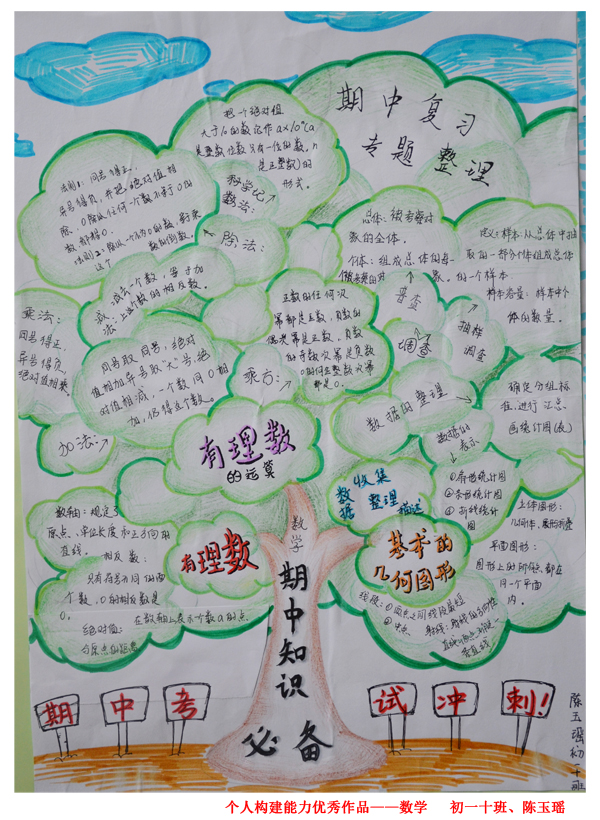 期中复习
专题整理
把一个绝对值
大于10的数记作a×10ⁿ(a
是整数位数只有一位的数,n
是正整数)的
形式。
科学记
数法:
法则1:同号得正,
异号得负,并把绝对值相
除。0除以任何一个数不等于0的
数都得0。
除法:
总体:被考察对
象的全体。
个体:组成总体的每一
象。
定义:样本:从总体中抽
取的一部分个体组成总体
的一个样本
样本容量:样本中个
体的数量。
普查
抽样
调查
调查
减去一个数,等于加
上这个数的相反数。
减
法:
乘法:
同号得正,
异号得负,
绝对值相乘
同号取同号,绝对
值相加异号取"大"号,绝
对值相减,一个数同0相
加,仍得这个数。
加法:
正数的任何次
幂都是正数,负数的
偶次幂是正数,负数
的奇数次幂是负数
0的任何正整数次幂
都是0。
乘方:
数据的整理
确定分组标
准,进行汇总
画统计图(表)
数据的
表示
①扇形统计图
②条形统计图
③折线统计
图
有理数
的运算
收集
数据整理描述
数轴:规定了
原点、单位长度和正方向的
直线。
相反数:
只有符号不同的两
个数,0的相反数是
0。
绝对值:
在数轴上表示个数a的点
与原点的距离
有理数
基本的
几何图形
立体图形:
几何体,展形折叠
平面图形:
图形上的所有点都在
同一个平面
内。
线段:①两点之间线段最短
②中点
数学
期中知识
必备
期中考
试冲刺!
陈玉瑶初一十班
个人构建能力优秀作品——数学 初一十班、陈玉瑶